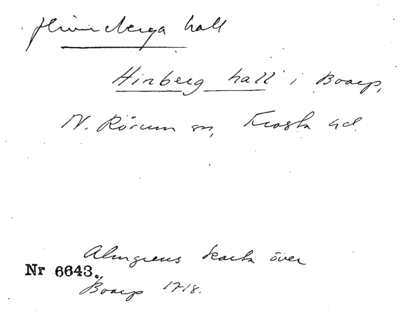 hall
Hinberg hall i Boarp,
N. Rörum sn, Frosta hd.
Almgrens karta över
Nr 6643.
Boarp 1718.